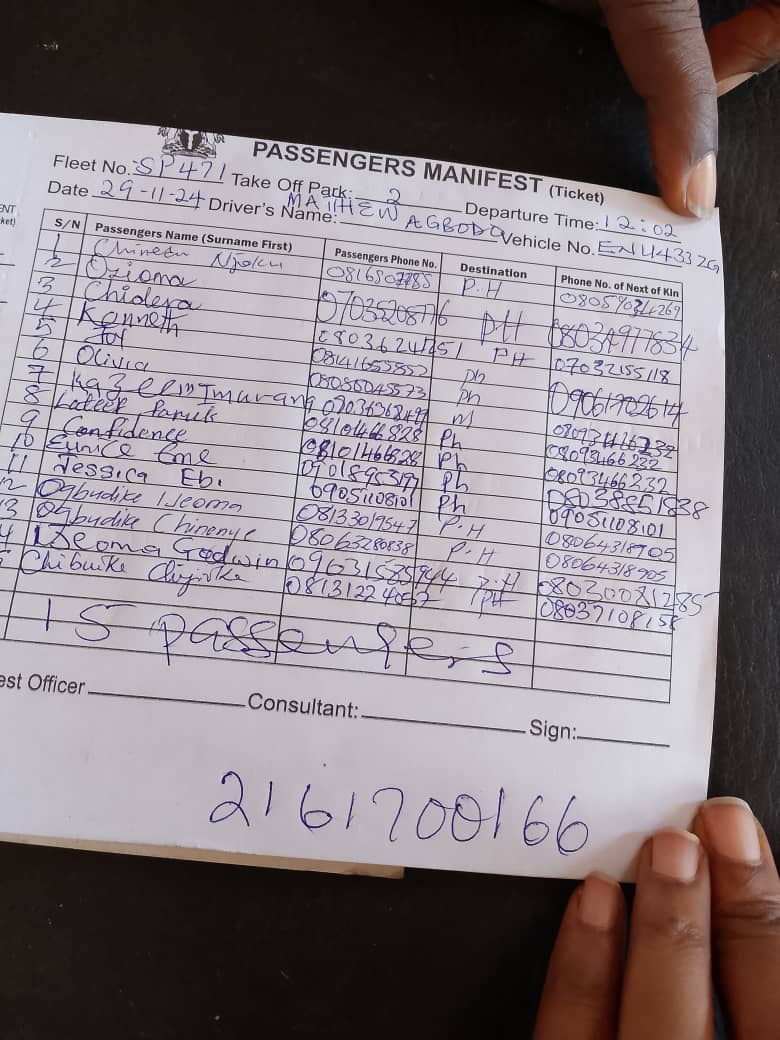 PASSENGERS MANIFEST (Ticket)
Fleet No. SP471 Take Off Park: 2 Departure Time: 12:02
Date 29-11-24 Driver's Name: MATTHEW AGBODO Vehicle No. ENU433ZG
S/N Passengers Name (Surname First) Passengers Phone No. Destination Phone No. of Next of Kin
1 Chinedu Njoku P.H
2 Ozioma 07035208776 PH 08034977834
3 Chidera PH 07032155118
4 Kenneth 08141653852 Ph 09061702614
5 Joy 08086045573 Ph
6 Olivia
7 Kazeem Imurana 08101466828 Ph 08093466232
8 Lateef Faruk 08101466828 Ph 08093466232
9 Confidence Ph
10 Eunice Eme 09051108101 Ph 09051108101
11 Jessica Ebi 08133019547 P.H 08064318905
12 Ogbudike Ijeoma 08063280838 P.H 08064318905
13 Ogbudike Chinenye P.H 08030081285
4 Ijeoma Godwin PH 08037108158
5 Chibuike
15 passengers
est Officer Consultant: Sign:
2161700166